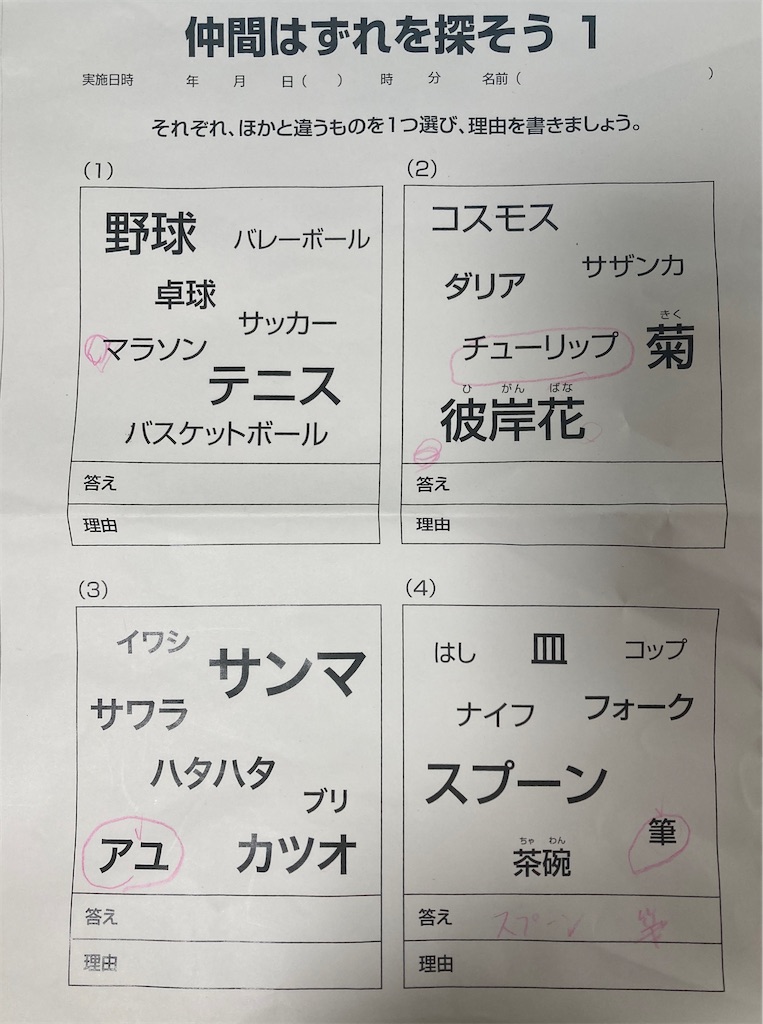 仲間はずれを探そう 1
実施日時 年 月 日( ) 時 分 名前( )
それぞれ、ほかと違うものを1つ選び、理由を書きましょう。
(1)
野球 バレーボール
卓球
サッカー
マラソン
テニス
バスケットボール
答え
理由
(2)
コスモス
サザンカ
ダリア
きく
チューリップ 菊
ひ がん ばな
彼岸花
答え
理由
(3)
イワシ サンマ
サワラ
ハタハタ
ブリ
アユ カツオ
答え
理由
(4)
はし 皿 コップ
ナイフ フォーク
スプーン
筆
ちゃ わん
茶碗
答え スプーン 筆
理由